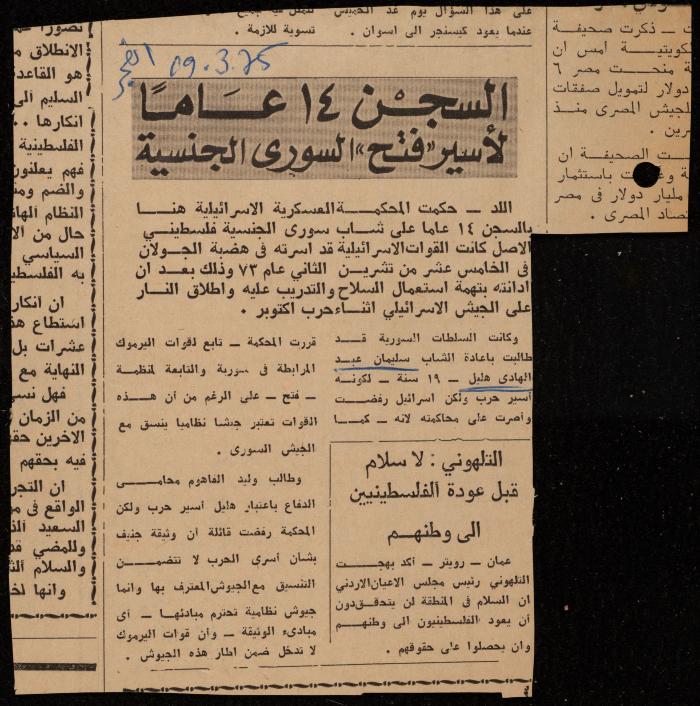 على هذا السؤال يوم غد الخميس
عندما يعود كيسنجر الى اسوان .
تسوية للازمة .
ـت ـ ذكرت صحيفة
كويتية امس ان
ـة منحت مصر ٦
دولار لتمويل صفقات
للجيش المصرى منذ
ـرين .
ـت الصحيفة ان
باستثمار
مليار دولار فى مصر
ـصاد المصرى .
الفجر
19.3.75
السجن ١٤ عاما
لأسير «فتح» السورى الجنسية
اللد ـ حكمت المحكمة العسكرية الاسرائيلية هنا
بالسجن ١٤ عاما على شاب سورى الجنسية فلسطيني
الاصل كانت القوات الاسرائيلية قد اسرته فى هضبة الجولان
فى الخامس عشر من تشرين الثاني عام ٧٣ وذلك بعد ان
ادانته بتهمة استعمال السلاح والتدريب عليه واطلاق النار
على الجيش الاسرائيلي اثناء حرب اكتوبر .
وكانت السلطات السورية قد
طالبت باعادة الشاب سليمان عبد
الهادى هليل ـ ١٩ سنة ـ لكونه
أسير حرب ولكن اسرائيل رفضت
وأصرت على محاكمته لانه ـ كما
قررت المحكمة ـ تابع لقوات اليرموك
المرابطة فى سورية والتابعة لمنظمة
ـ فتح ـ على الرغم من أن هذه
القوات تعتبر جيشا نظاميا ينسق مع
الجيش السورى .
وطالب وليد الفاهوم محامى
الدفاع باعتبار هليل أسير حرب ولكن
المحكمة رفضت قائلة أن وثيقة جنيف
بشان أسرى الحرب لا تتضمن
التنسيق مع الجيوش المعترف بها وانما
جيوش نظامية تحترم مبادئها ـ أى
مبادىء الوثيقة ـ وأن قوات اليرموك
لا تدخل ضمن اطار هذه الجيوش .
التلهوني : لا سلام
قبل عودة الفلسطينيين
الى وطنهم
عمان ـ رويتر ـ أكد بهجت
التلهوني رئيس مجلس الاعيان الاردني
ان السلام فى المنطقة لن يتحقق دون
أن يعود الفلسطينيون الى وطنهم
وان يحصلوا على حقوقهم .
تصورا
الانطلاق م
هو القاعد
السليم الى
انكارها ..
الفلسطينية
فهم يعلنون
والضم ومن
النظام الها
حال من الا
السياسي
به الفلسطيـ
ان انكار
استطاع هذ
عشرات بل
النهاية مع
فهل نسى
من الزمان
الاخرين حقـ
فيه بحقهم
ان التجر
الواقع فى م
السعيد الذ
وللمضي قد
والسلام الذ
وانها لخـ